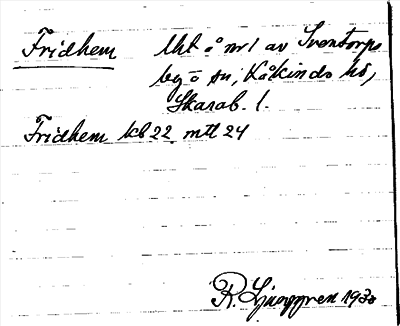 Fridhem Uht å nr 1 av Sventorps
by o sn, Kåkinds hd,
Skarab. l.
Fridhem kb 22 mtl 24
R. Ljunggren 1930